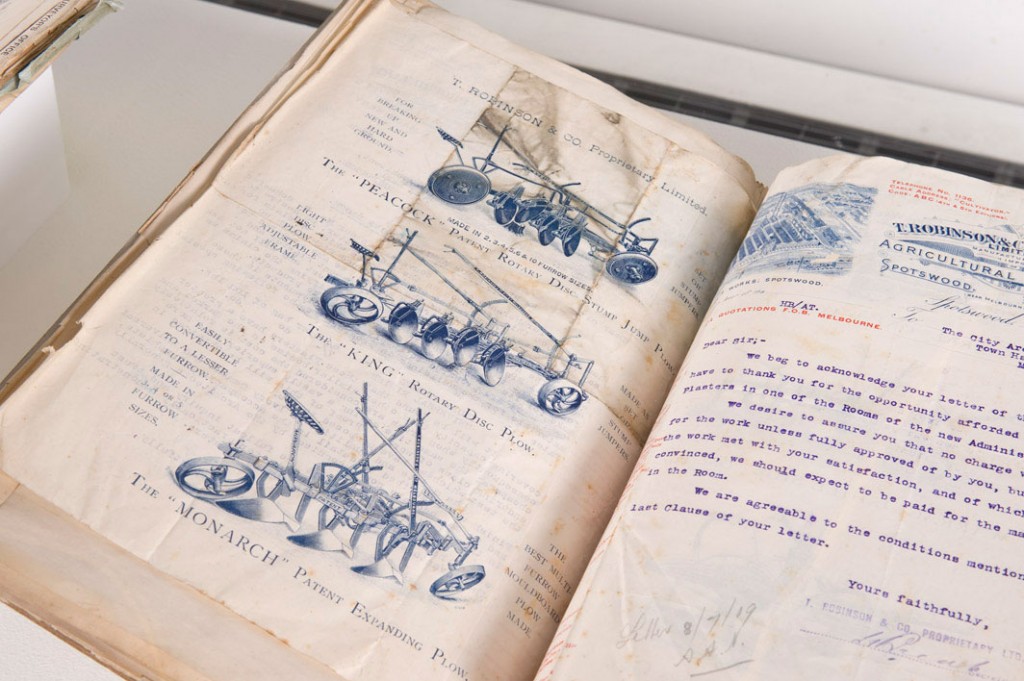 VEYOR'S OFFICE
T. ROBINSON & CO. Proprietary Limited.
FOR
BREAKING
UP
NEW AND
HARD
GROUND
THE "PEACOCK" PATENT ROTARY DISC STUMP JUMP PLOW
MADE IN 2, 3, 4, 5, 6 & 10 FURROW SIZES
LIGHT
DISC
PLOW
ADJUSTABLE
FRAME.
SET
STUMP
JUMPERS
THE "KING" ROTARY DISC PLOW.
EASILY
CONVERTIBLE
TO A LESSER
FURROW.
MADE IN
FURROW
SIZES.
MADE AS
SET
STUMP
JUMPERS
THE "MONARCH" PATENT EXPANDING PLOW.
THE
BEST MULTI
FURROW
MOULDBOARD
PLOW
MADE.
TELEPHONE No. 1136.
CABLE ADDRESS, "CULTIVATOR"
CODE A.B.C. 4TH & 5TH EDITIONS.
T. ROBINSON & C
LIMIT
AGRICULTURAL
SPOTSWOOD,
WORKS: SPOTSWOOD.
Spotswood
HB/AT.
QUOTATIONS F.O.B. MELBOURNE.
The City Arc
Town Ha
M
Dear Sir;-
We beg to acknowledge your letter of th
have to thank you for the opportunity afforded
Plasters in one of the Rooms of the new Adminis
We desire to assure you that no charge w
for the work unless fully approved of by you, bu
the work met with your satisfaction, and of which
convinced, we should expect to be paid for the ma
in the Room.
We are agreeable to the conditions mention
last Clause of your letter.
Yours faithfully,
T. ROBINSON & CO. PROPRIETARY LTD.
8/7/09